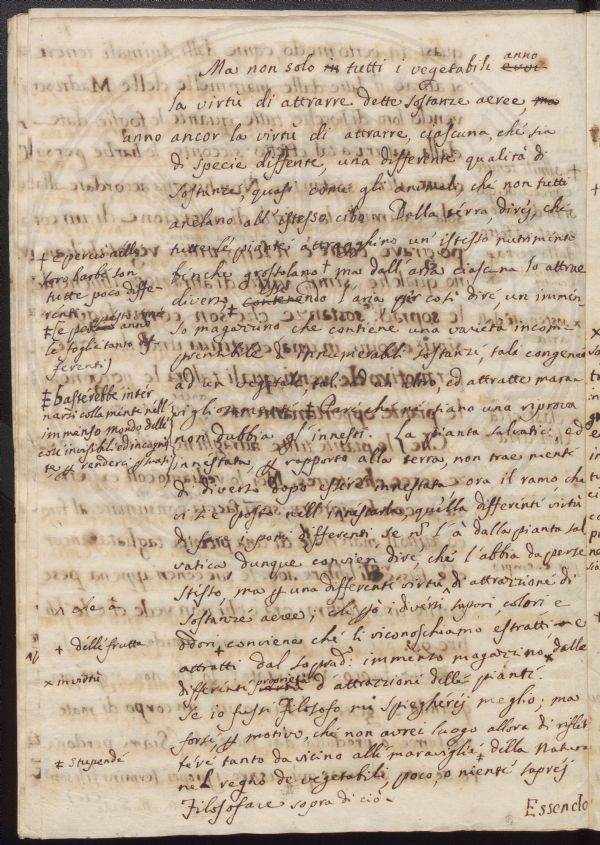 Ma non solo in tutti i vegetabili anno
la virtù di attrarre dette sostanze aeree, ma
anno ancor la virtù di attrarre, ciascuna, ché sia
di specie differente, una differente qualità di
sostanze, quasi come gli animali, che non tutti
anelano all'istesso cibo. Dalla terra direi, che
tutte le piante attragghino un' istesso nutrimento
benche grossolano + ma dall' aria ciascuna lo attrae
diverso, contenendo l'aria per così dire, un immen
so magazzino che contiene una varietà incom
prensibile d' innumerabili sostanze, tali congenee
ad un vegetale, tali ad un altro, ed attratte mara
vigliosamente ‡ Pare che ne siano una riprova
non dubbia gl' innesti. La pianta salvatica, ed
innestata, per rapporto alla terra, non trae niente
di diverso dopo esser innestata ora il ramo che
vi z'è posto nell' innestarla, quella differente virtù
di far i pomi differenti se non l'à dalla pianta sal
vatica dunque convien dire, che l'abbia da per se
stesso, ma per una differente virtù di attrazzione di
sostanze aeree; che per i diversi sapori, colori e
odori, conviene che li riconoschiamo estratti e
attratti dal soprad: immenso magazzino, dalle
differenti proprietà d' attrazzioni delle piante.
Se io fussi Filosofo mi spiegherei meglio; ma
forse per motivo, che non avrei luogo allora di riflet
tere tanto da vicino alle maraviglie della Natura
nel regno de vegetabili, poco, o niente saprei
Filosofare sopra di ciò.
Essendo
+ e perciò nelle
loro barbe son
tutte poco diffe-
renti
le foglie tanto dif
ferenti)
‡ basterebbe inter
narsi colla mente nell'
immenso mondo delle
cose invisibili ed incogni
te per rendersi persuasi
+ delle frutta
x in virtù
‡ stupende